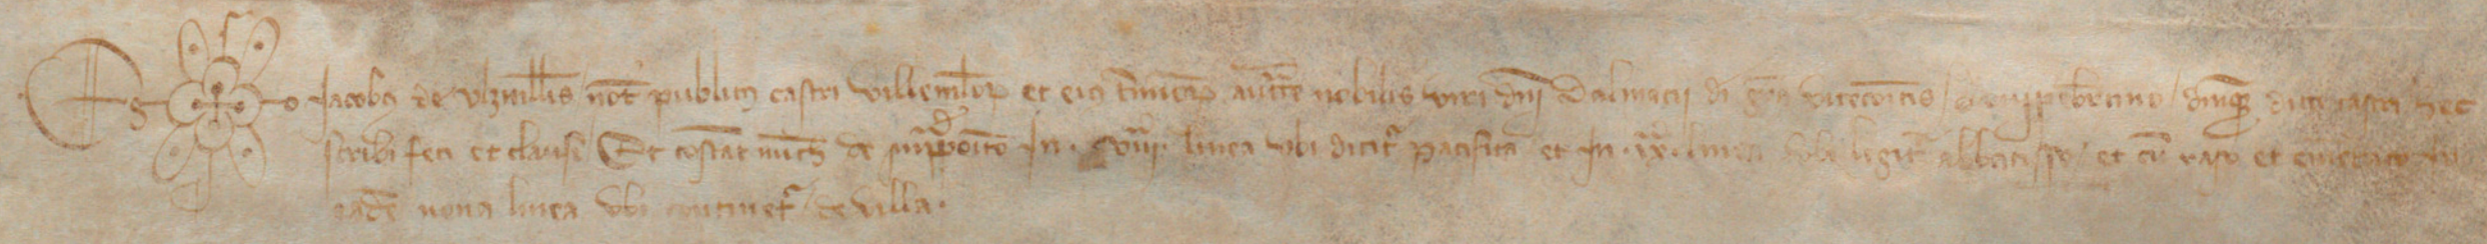 Ego Jacobus de ulzinellis not' publicus castri villemulor' et eius t'minor' auctte nobilis viri dni Dalmacii di gra vicecomitis dnique dicti castri hec
scribi feci et clausi Et constat mich de suprapoito In .viii. linea ubi dicitr pacifica et In .ix. linea ubi legitr et cu raso et emendato In
eade nona linea ubi continetr de villa.